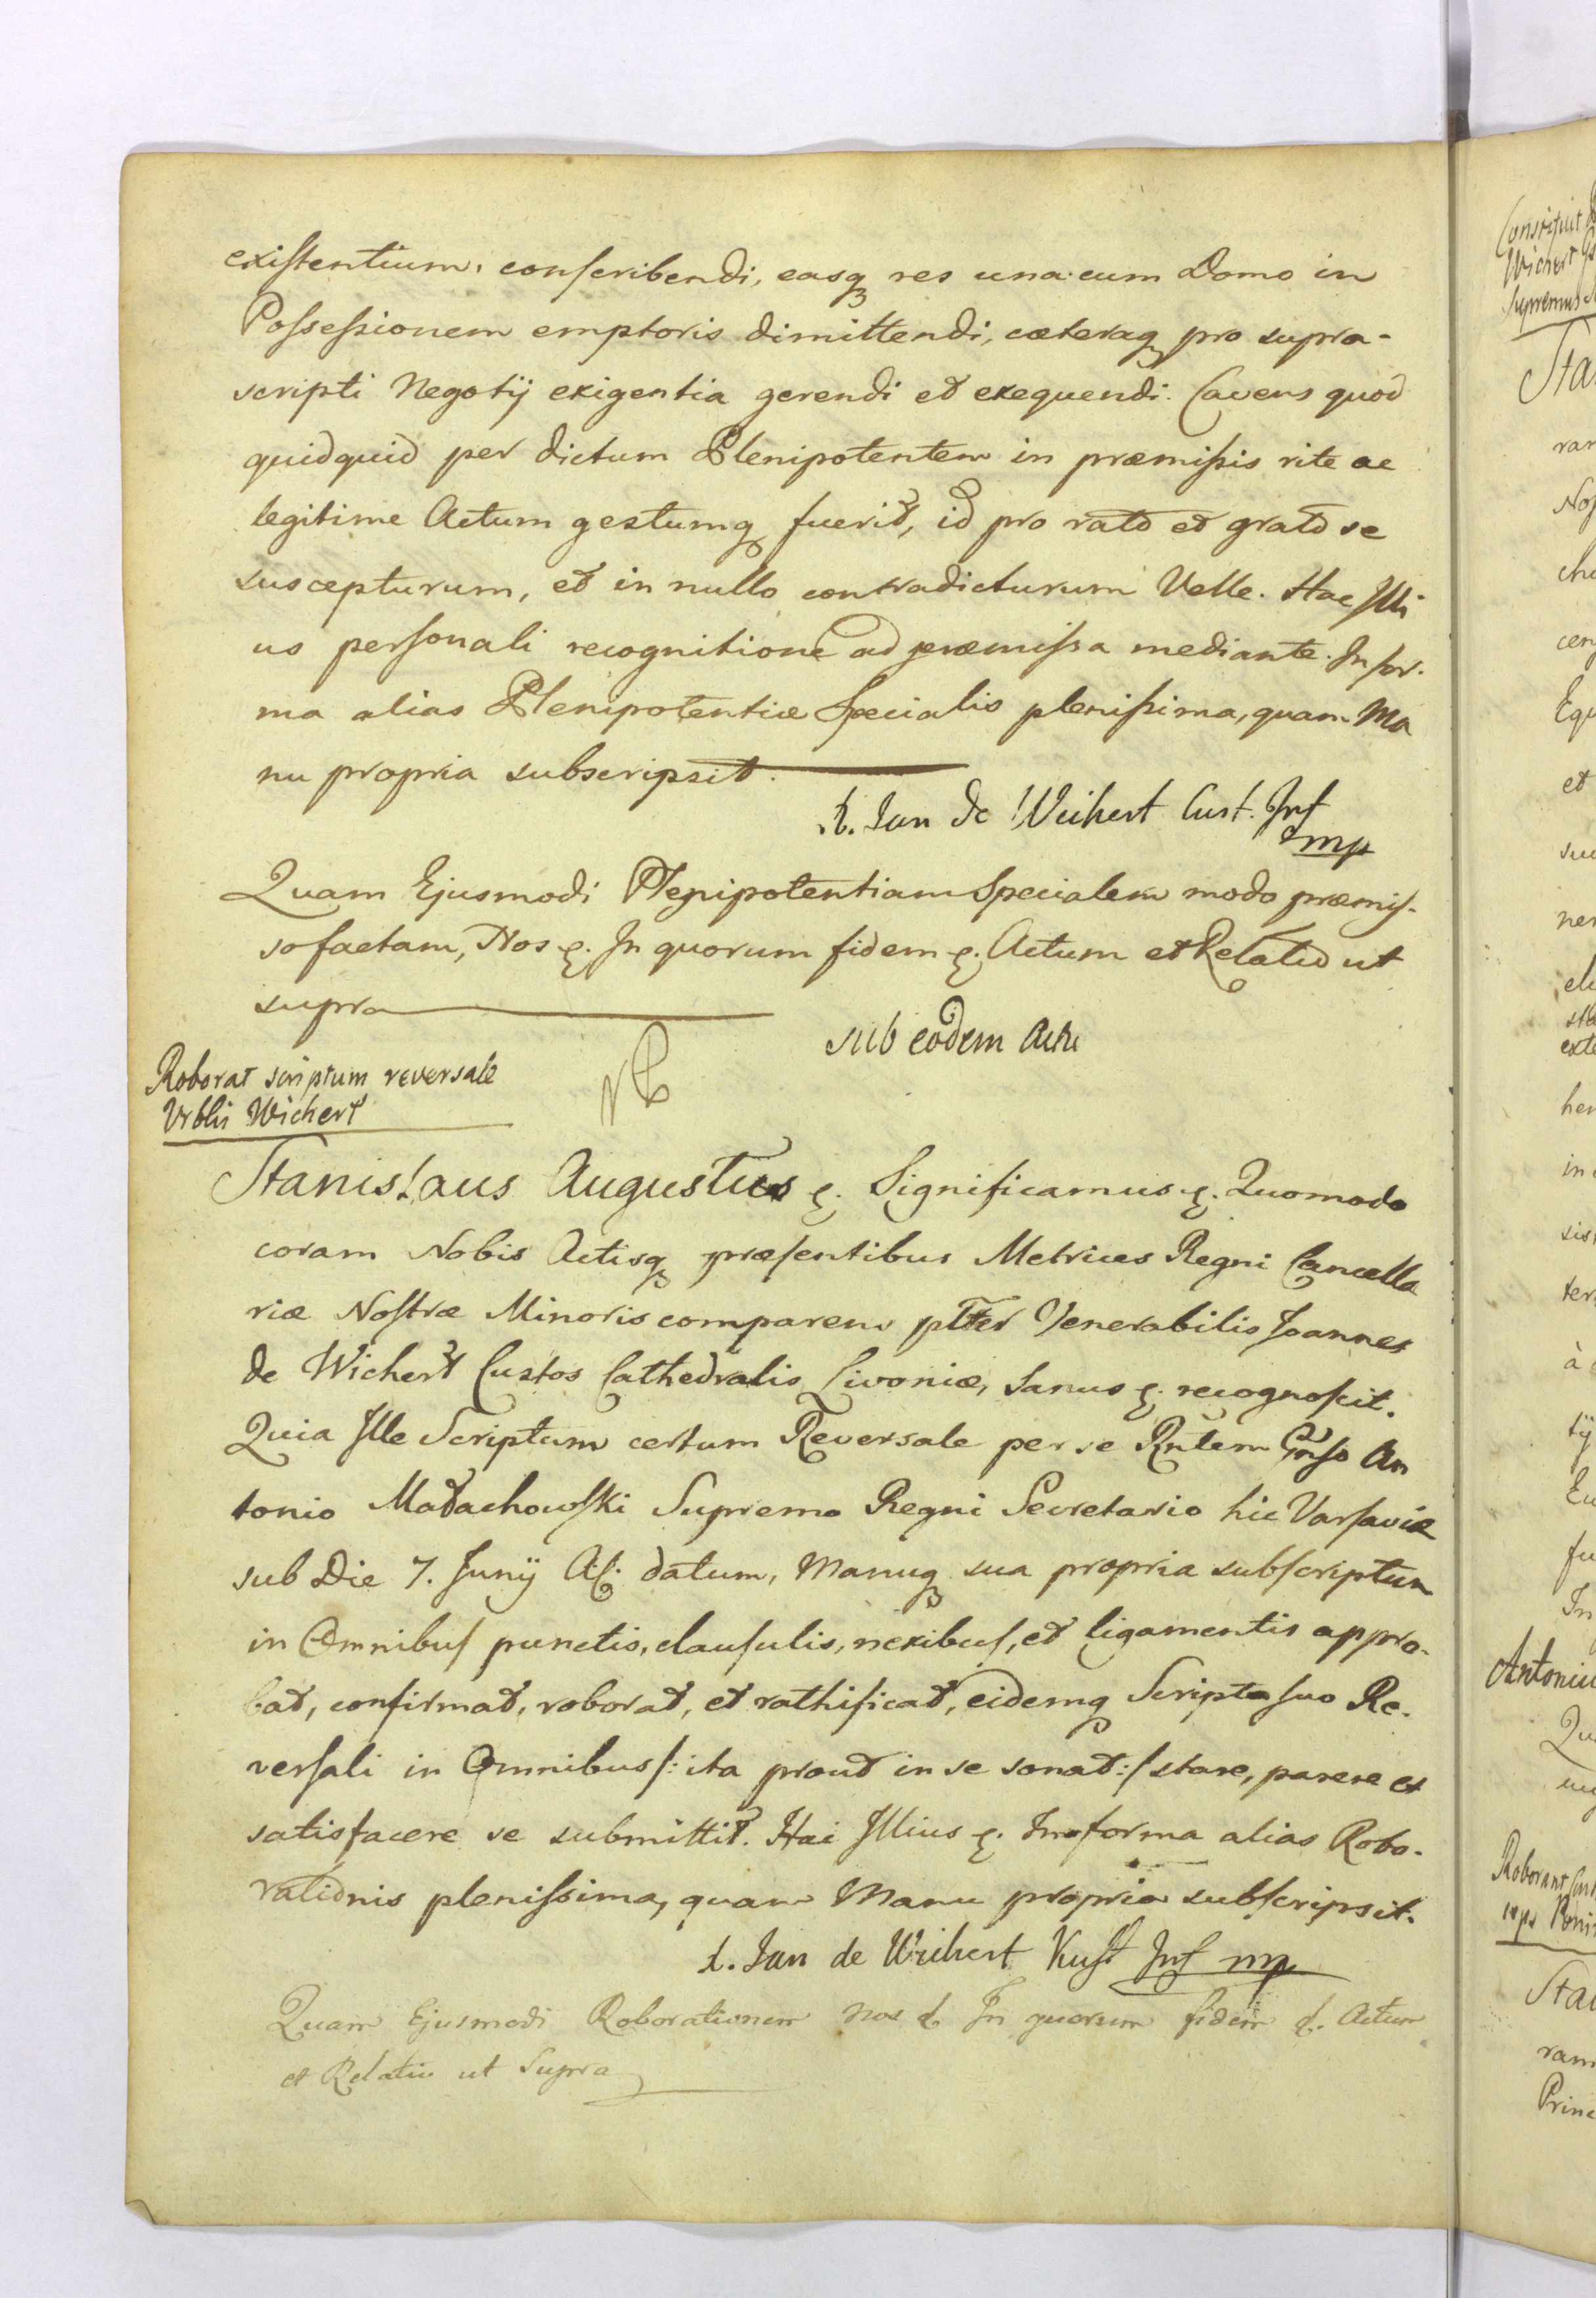 existentium, conscribendi, easq3 res una cum Domo in
Possessionem emptoris dimittendi, cæteraq3 pro supra-
scripti Negotij exigentia gerendi et exequendi. Cavens quod
quidquid per dictum Plenipotentem in præmissis rite ac
legitime Actum gestumq3 fuerit, id pro rato et grato se
suscepturum, et in nullo contradicturum Velle. Hac Illi
us personali recognitione ad præmissa mediante. In for-
ma alias Plenipotentiæ Specialis plenissima, quam Ma
nu propria subscripsit.
X. Jan de Weihert Cust. Inf
mp
Quam Ejusmodi Plenipotentiam Specialem modo præmis-
so factam, Nos &. In quorum fidem &. Actum et Relatio ut
supra
sub eodem Actu
Roborat scriptum reversale
Vrblis Wichert
Stanislaus Augustus &. Significamus &. Quomodo
coram Nobis Actisq3 præsentibus Metrices Regni Cancella
riæ Nostræ Minoris comparens pltter Venerabilis Joannes
de Wichert Custos Cathedralis Livoniæ, Sanus &. recognoscit.
Quia Ille Scriptum certum Reversale per se Rntem Gnso An
tonio Małachowski Supremo Regni Secretario hic Varsaviæ
sub Die 7. Junij A: datum, Manuq3 sua propria subscriptum
in Omnibus punctis, clausulis, nexibus, et ligamentis appro-
bat, confirmat, roborat, et rathificat, eidemq3 Scripto suo Re-
versali in Omnibus /: ita prout in se sonat :/ stare, parere et
satisfacere se submittit. Hac Illius &. In forma alias Robo-
rationis plenissima, quam Manu propria subscripsit.
X. Jan de Weihert Kust Inf mp
Quam Ejusmodi Roborationem nos &. In quorum fidem &. Actum
et Relatio ut Supra